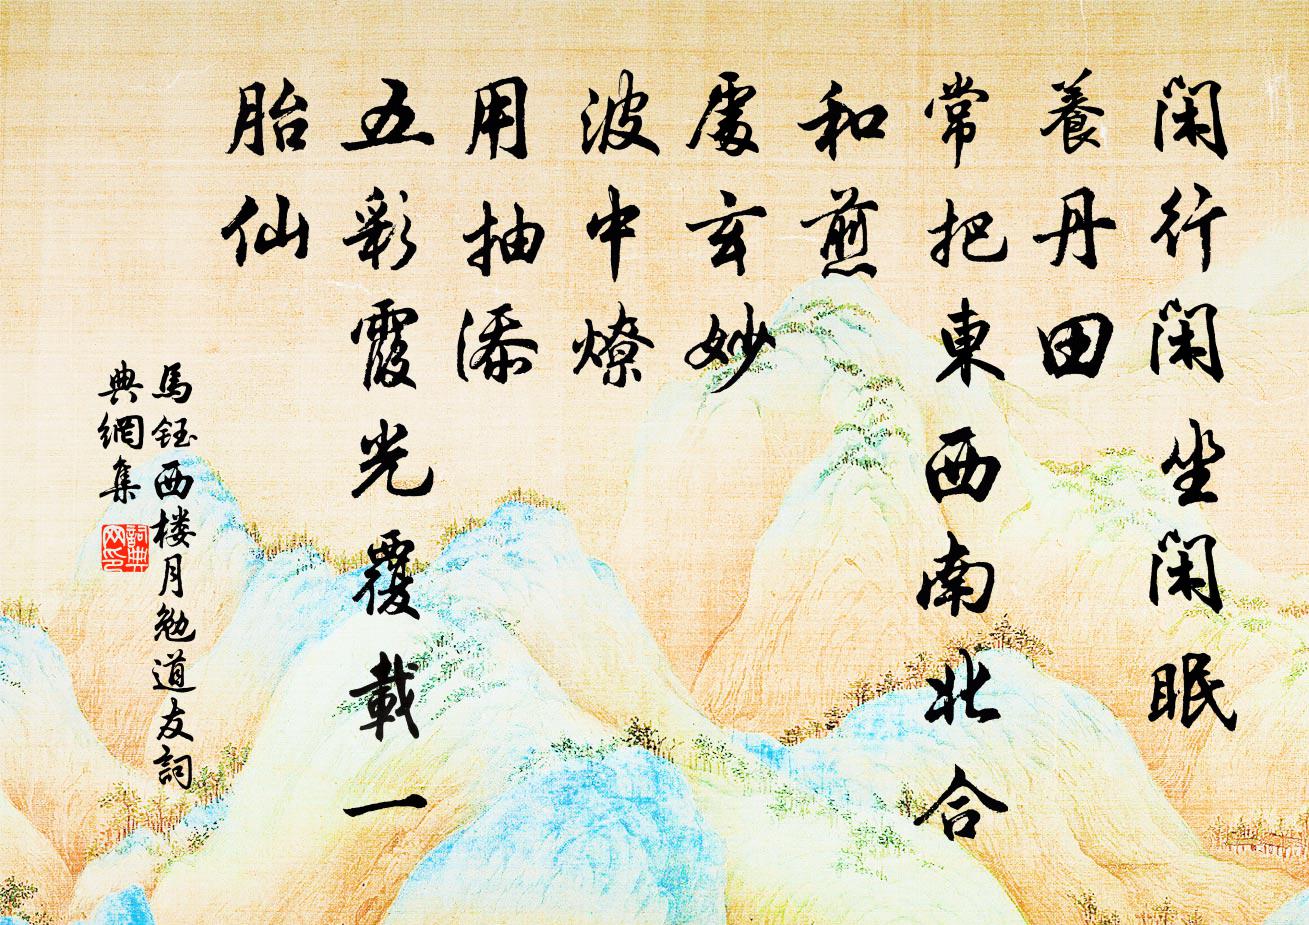 閑行閑坐閑眠
養丹田
常把東西南北合
和煎
處玄妙
波中燎
用抽添
五彩霞光覆載一
胎仙
馬鈺西楼月勉道友詞
典網集
詞典網印